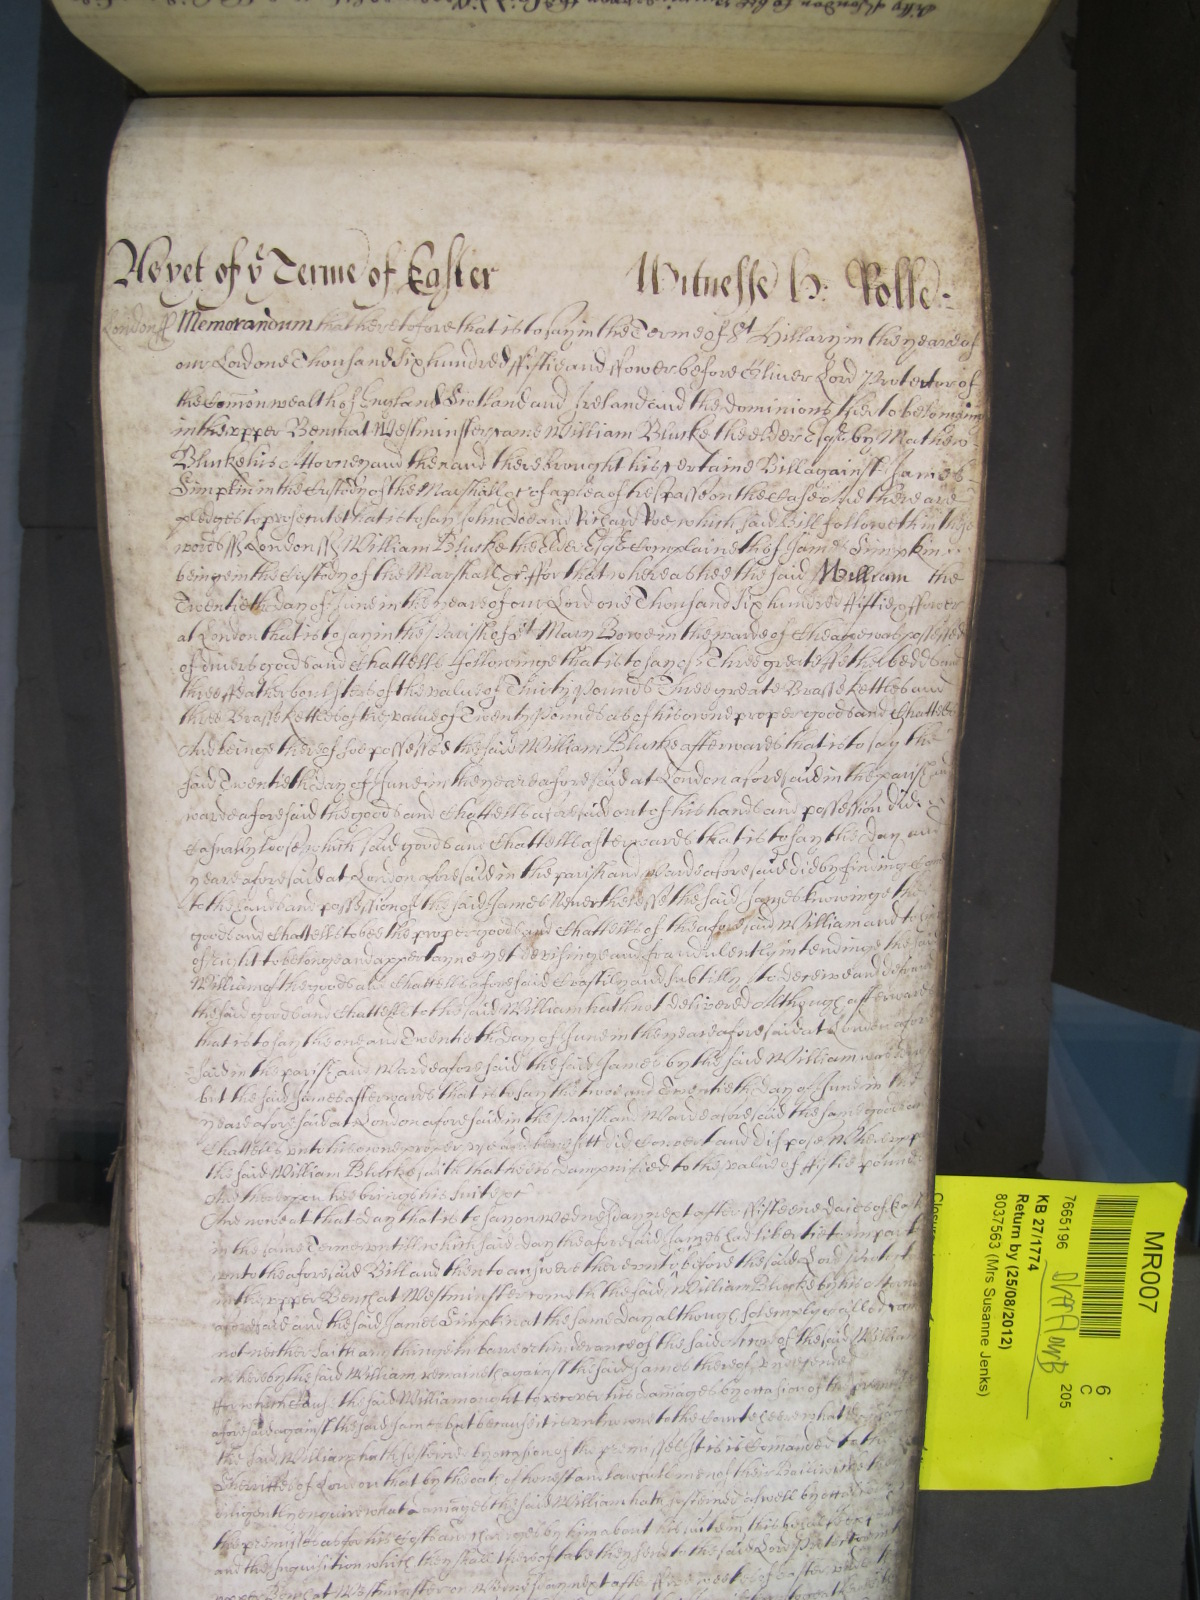 As yet of ye Terme of Easter Witnesse H: Rolle:
Londonss Memorandum that heretofore that is to say in the Terme of St Hillary in the yeare of
our Lord one Thousand Six hundred ffiftie and ffower before Oliver Lord Protector of
the Comonwealth of England Scotland and Ireland and the dominions thereto belonging
in the upper Bench at Westminster came William Blucke the elder Esqr by Mathew
Blucke his Attorney and then and there brought his certaine Bill against James
Simpkin in the Custody of the Marshall &c of a plea of trespasse on the Case And there are
pledges to prosecute that is to say John Doe and Richard Roe which said Bill followeth in these
words ss London ss William Blucke the Elder Esqr Complaineth of James Simpkin
beinge in the Custody of the Marshall &c ffor that whereas hee the said William the
Twentieth day of June in the yeare of our Lord one Thousand Six hundred ffiftie & ffower
at London that is to say in the Parish of St Mary Bowe in the warde of Cheape was possessed
of divers goods and Chattells followinge that is to say of Three greate ffetherbedds and
three ffeather boulsters of the value of Thirty Pounds Three greate Brasse kettles and
three Brasse kettles of the value of Twenty Pounds as of his owne proper goods and Chattells
And beinge thereof soe possessed the said William Blucke afterwards that is to say the
said Twentieth day of June in the yeare aforesaid at London aforesaid in the parish and
warde aforesaid the goods and Chattells aforesaid out of his hands and possession did
Casually loose which said goods and Chattells afterwards that is to say the day and
yeare aforesaid at London aforesaid in the parish and Warde aforesaid did by findinge Come
to the hands and possession of the said James Neverthelesse the said James knowinge the
goods and Chattells to bee the proper goods and Chattells of the aforesaid William and to him
of right to belonge and appertayne yet devisinge and fraudulently intendinge the said
William of the goods and Chattells aforesaid Craftily and subtilly to deceive and defraud
the said goods and Chattells to the said William hath not delivered Although afterwards
that is to say the one and Twentieth day of June in the yeare aforesaid at London afore
said in the parish and Warde aforesaid the said James by the said William was
but the said James afterwards that is to say the two and Twentieth day of June in the
yeare aforesaid at London aforesaid in the Parish and Warde aforesaid the same goods and
Chattells unto his owne proper use and benefitt did Convert and dispose Whereupon
the said William Blucke saith that hee is dampnified to the value of ffiftie pounds
And thereupon he brings his suite &c
And now at that day that is to say on Wednesday next after ffifteene daies of Easter
in the same Terme untill which said day the aforesaid James had libertie to imparle
unto the aforesaid Bill and then to answere thereunto before the said Lord Protector
in the upper Bench at Westminster cometh the said William Blucke by his Attorney
aforesaid and the said James Simpkin at the same day although solemply called came
not neither saith any thinge in barre or hinderance of the said Accion of the said William
whereby the said William remaineth against the said James thereof undefended
ffor which Cause the said William ought to recover his damages by occasion of the premisses
aforesaid against the said James but because it is unknowne to the Court here what damages
the said William hath susteined by occasion of the premisses It is Comanded to the
Sheriffes of London that by the oath of honest and lawfull men of their Bailiwicke they
diligently enquire what damages the said William hath susteined aswell by occasion of
the premisses as for his Costs and Charges by him about his suite in this behalfe
and the Inquisition which they shall thereof take they send to the said Lord Protector in the
upper Bench at Westminster on Wednesday next after ffive weekes of Easter under
MR007
6
C
205
7665196
KB 27/1774
Return by (25/08/2012)
8037563 (Mrs Susanne Jenks)